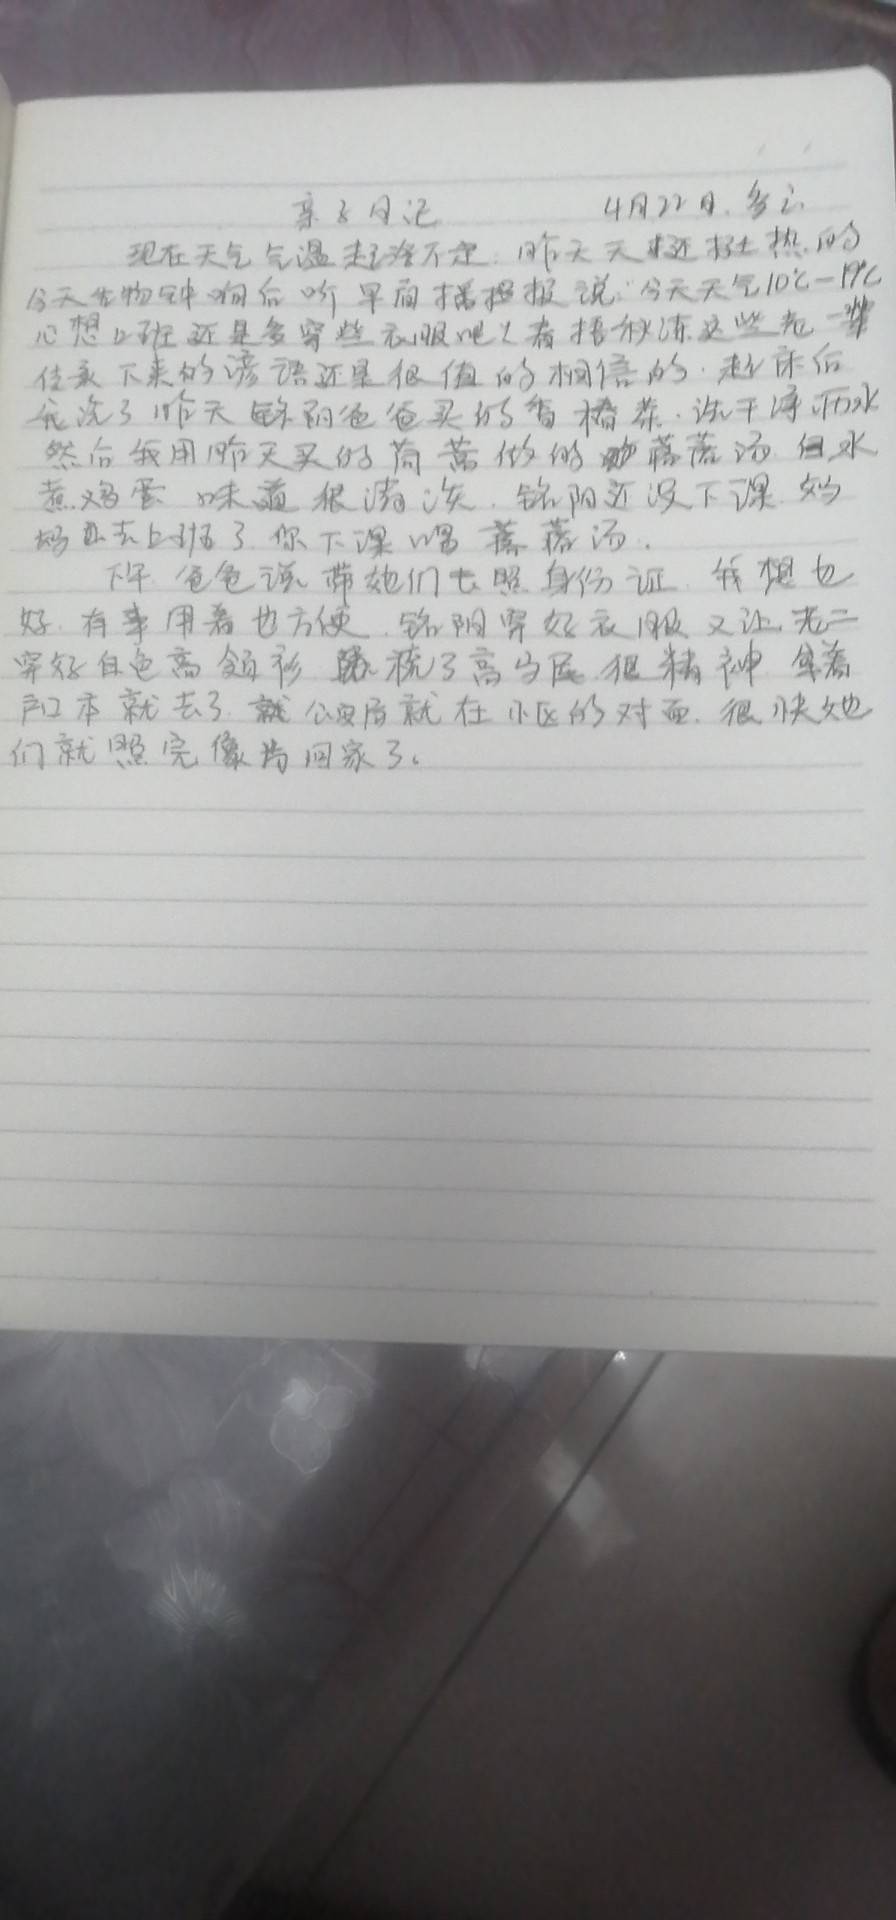 亲子日记 4月22日.多云
现在天气气温起冷不定.昨天天还挺热的
今天生物钟响后听早间播报说:今天天气10℃-19℃
心想上班还是多穿些衣服吧!春捂秋冻这些老一辈
传承下来的谚语还是很值的相信的.起床后
我洗了昨天铭阳爸爸买的香椿芽.洗干净沥水
然后我用昨天买的茼蒿做的蒿汤.白水
煮鸡蛋 味道很清淡.铭阳还没下课.妈
妈去上班了你下课喝汤.
下午爸爸说带她们去照身份证.我想也
好.有事用着也方便.铭阳穿好衣服又让老二
穿好白色高领衫 梳了高马尾很精神 拿着
户口本就去了.公安局就在小区的对面.很快她
们就照完像回家了。